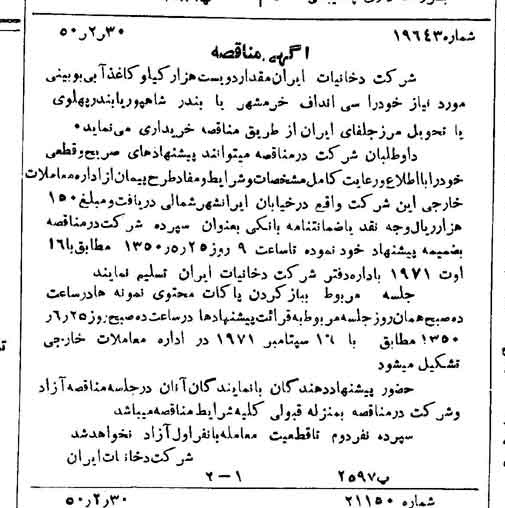 شماره ۱۹۶۴۳ ۵۰٫۲٫۳۰
آگهی مناقصه
شرکت دخانیات ایران مقدار دویست هزار کیلو کاغذ آبی بوبینی
مورد نیاز خود را سی اند اف خرمشهر یا بندر شاهپور یا بندر پهلوی
یا تحویل مرز جلفای ایران از طریق مناقصه خریداری می نماید۰
داوطلبان شرکت در مناقصه میتوانند پیشنهادهای صریح و قطعی
خود را با اطلاع و رعایت کامل مشخصات و شرایط و مفاد طرح پیمان از اداره معاملات
خارجی این شرکت واقع در خیابان ایرانشهر شمالی دریافت و مبلغ ۱۵۰
هزار ریال وجه نقد یا ضمانتنامه بانکی بعنوان سپرده شرکت در مناقصه
بضمیمه پیشنهاد خود نموده تا ساعت ۹ روز ۲۵ر۵ر۱۳۵۰ مطابق با ۱۶
اوت ۱۹۷۱ باداره دفتر شرکت دخانیات ایران تسلیم نمایند
جلسه مربوط بباز کردن پاکات محتوی نمونه ها در ساعت
ده صبح همان روز جلسه مربوط به قرائت پیشنهادها در ساعت ده صبح روز ۲۵ر۶ر
۱۳۵۰ مطابق با ۱۶ سپتامبر ۱۹۷۱ در اداره معاملات خارجی
تشکیل میشود
حضور پیشنهاد دهندگان یا نمایندگان آنان در جلسه مناقصه آزاد
و شرکت در مناقصه بمنزله قبولی کلیه شرایط مناقصه میباشد
سپرده نفر دوم تا قطعیت معامله با نفر اول آزاد نخواهد شد
شرکت دخانیات ایران
پ ۲۵۹۷ ۱-۲
شماره ۲۱۱۵۰ ۵۰٫۲٫۳۰